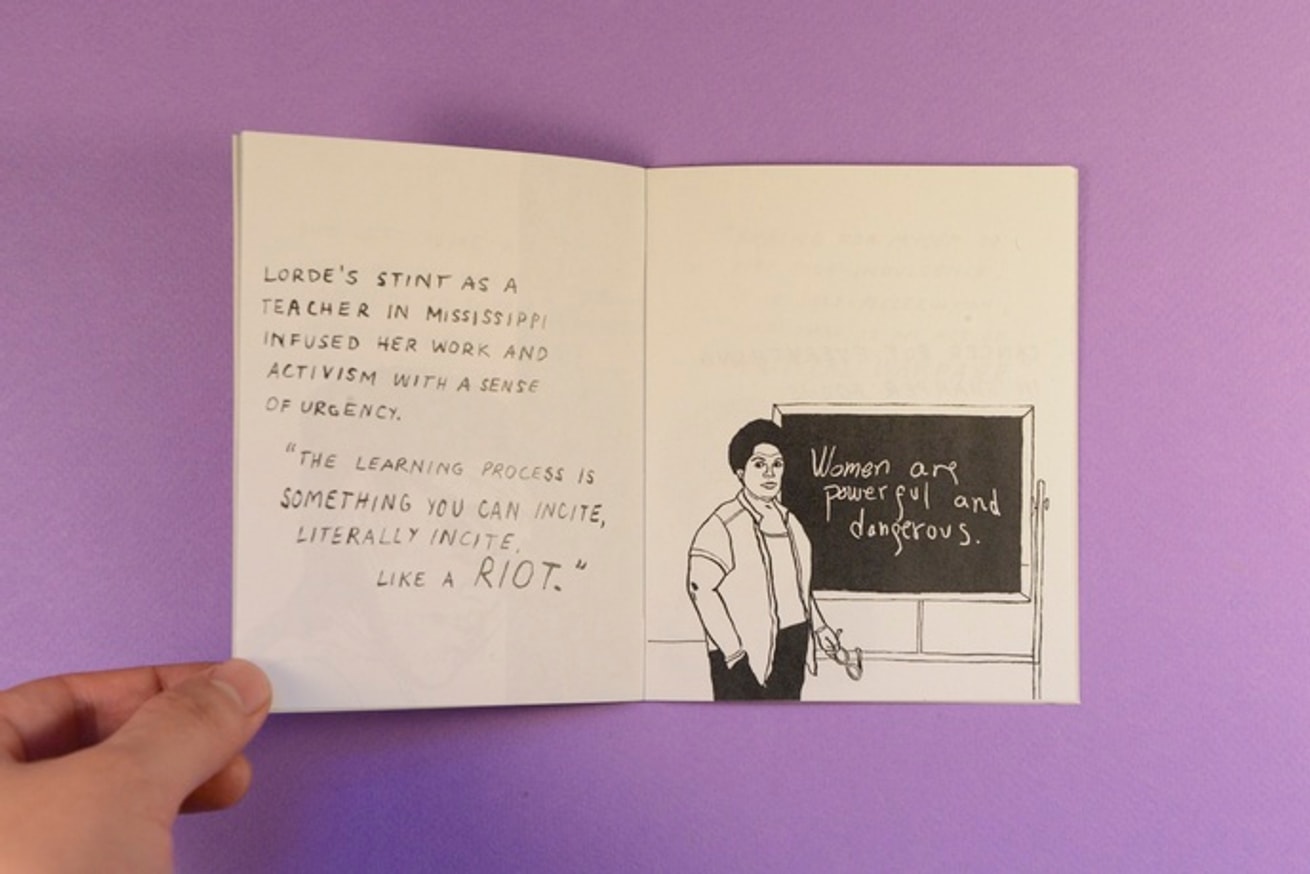 LORDE'S STINT AS A
TEACHER IN MISSISSIPPI
INFUSED HER WORK AND
ACTIVISM WITH A SENSE
OF URGENCY.
"THE LEARNING PROCESS IS
SOMETHING YOU CAN INCITE,
LITERALLY INCITE.
LIKE A RIOT."
Women are
powerful and
dangerous.